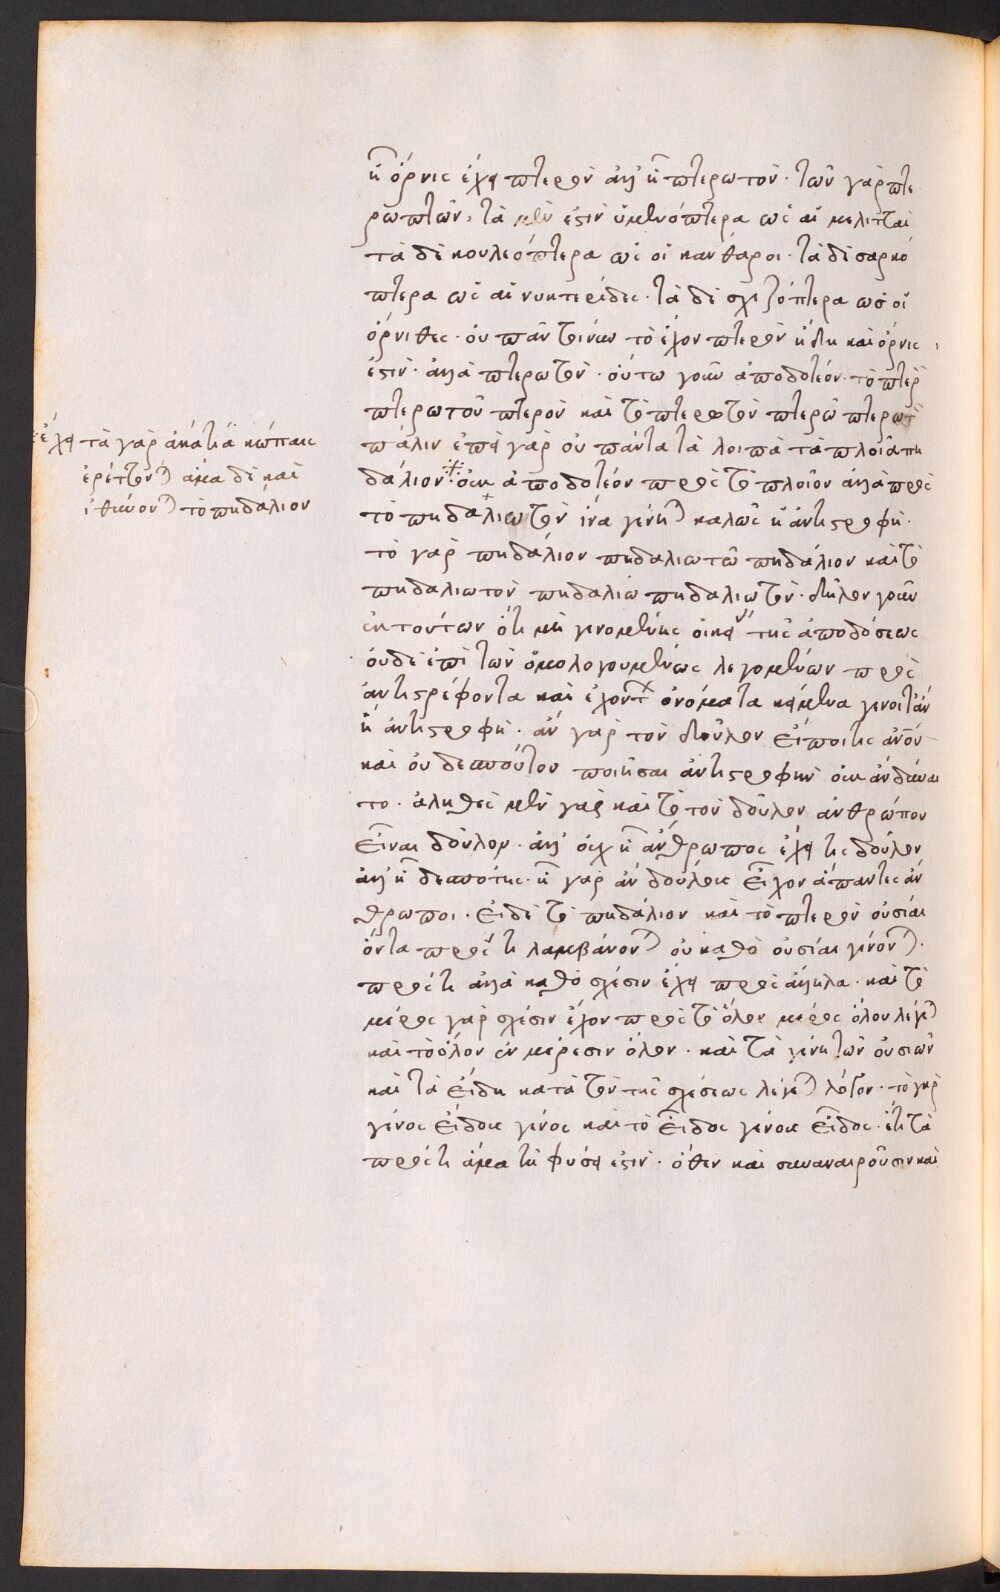 ἢ ὄρνις ἔχει πτερὸν ἀλλ' ἢ πτερωτὸν· τῶν γὰρ πτε
ρωπτῶν, τὰ μὲν ἐστὶν ὑμενόπτερα ὡς αἱ μέλιτται
τὰ δὲ κουλεόπτερα ὡς οἱ κανθαροι· τὰ δὲ σαρκό
πτερα ὡς αἱ νυκτερίδες· τὰ δὲ σχιζόπτερα ὡς οἱ
ὄρνιθες· οὐ πᾶν τοίνυν τὸ ἔχον πτερὸν ἤδη καὶ ὄρνις
ἐστὶν· ἀλλὰ πτερωτὸν· οὕτω γοῦν ἀποδοτέον· τὸ πτερὸν
πτερωτοῦ πτερὸν καὶ τὸ πτερωτὸν πτερῶ πτερωτὸν
πάλιν ἐπεὶ γὰρ οὐ πάντα τὰ λοιπὰ τὰ πλοῖα πη
δάλιον· οὐκ ἀποδοτέον πρὸς τὸ πλοῖον ἀλλὰ πρὸς
τὸ πηδαλιωτὸν ἵνα γένηται καλῶς ἡ ἀντιστροφὴ·
τὸ γὰρ πηδάλιον πηδαλιωτῶ πηδάλιον καὶ τὸ
πηδαλιωτὸν πηδαλίω πηδαλιωτὸν· δῆλον γοῦν
ἐκ τούτων ὅτι μὴ γινομένης οἰκείας τῆς ἀποδόσεως
οὐδὲ ἐπὶ τῶν ὁμολογουμένως λεγομένων πρὸς
ἀντιστρέφοντα καὶ ἔχοντα ὀνόματα κείμενα γένοιτ' ἂν
ἡ ἀντιστροφὴ· ἂν γὰρ τὸν δοῦλον εἴποι τις ἀνου
καὶ οὐ δεσπότου ποιῆσαι ἀντιστροφὴν οὐκ ἂν δύναι
το· ἀληθὲς μὲν γὰρ καὶ τὸ τὸν δοῦλον ἀνθρώπου
εἶναι δοῦλον· ἀλλ' οὐχ ἢ ἄνθρωπος ἔχει τις δοῦλον
ἀλλ' ἢ δεσπότης· ἢ γὰρ ἂν δούλους εἶχον ἅπαντες ἄν
θρωποι· εἰ δὲ τὸ πηδάλιον καὶ τὸ πτερὸν οὐσίαι
ὄντα πρός τι λαμβάνονται οὐ καθὸ οὐσίαι γίνονται·
πρός τι ἀλλὰ καθὸ σχέσιν ἔχει πρὸς ἄλληλα· καὶ τὸ
μέρος γὰρ σχέσιν ἔχον πρὸς τὸ ὅλον μέρος ὅλου λέγεται
καὶ τὸ ὅλον ἐν μέρεσιν ὅλον· καὶ τὰ γένη τῶν οὐσιῶν
καὶ τὰ εἴδη κατὰ τὸν τῆς σχέσεως λέγεται λόγον· τὸ γὰρ
γένος εἴδους γένος καὶ τὸ εἶδος γένους εἶδος· ἔτι τὰ
πρός τι ἅμα τῇ φύσει ἐστὶν· ὅθεν καὶ συναναιροῦσιν καὶ
ἔχει τὰ γὰρ ἀκάτια κώπαις
ἐρέττονται ἅμα δὲ καὶ
ἰθύνονται τὸ πηδάλιον